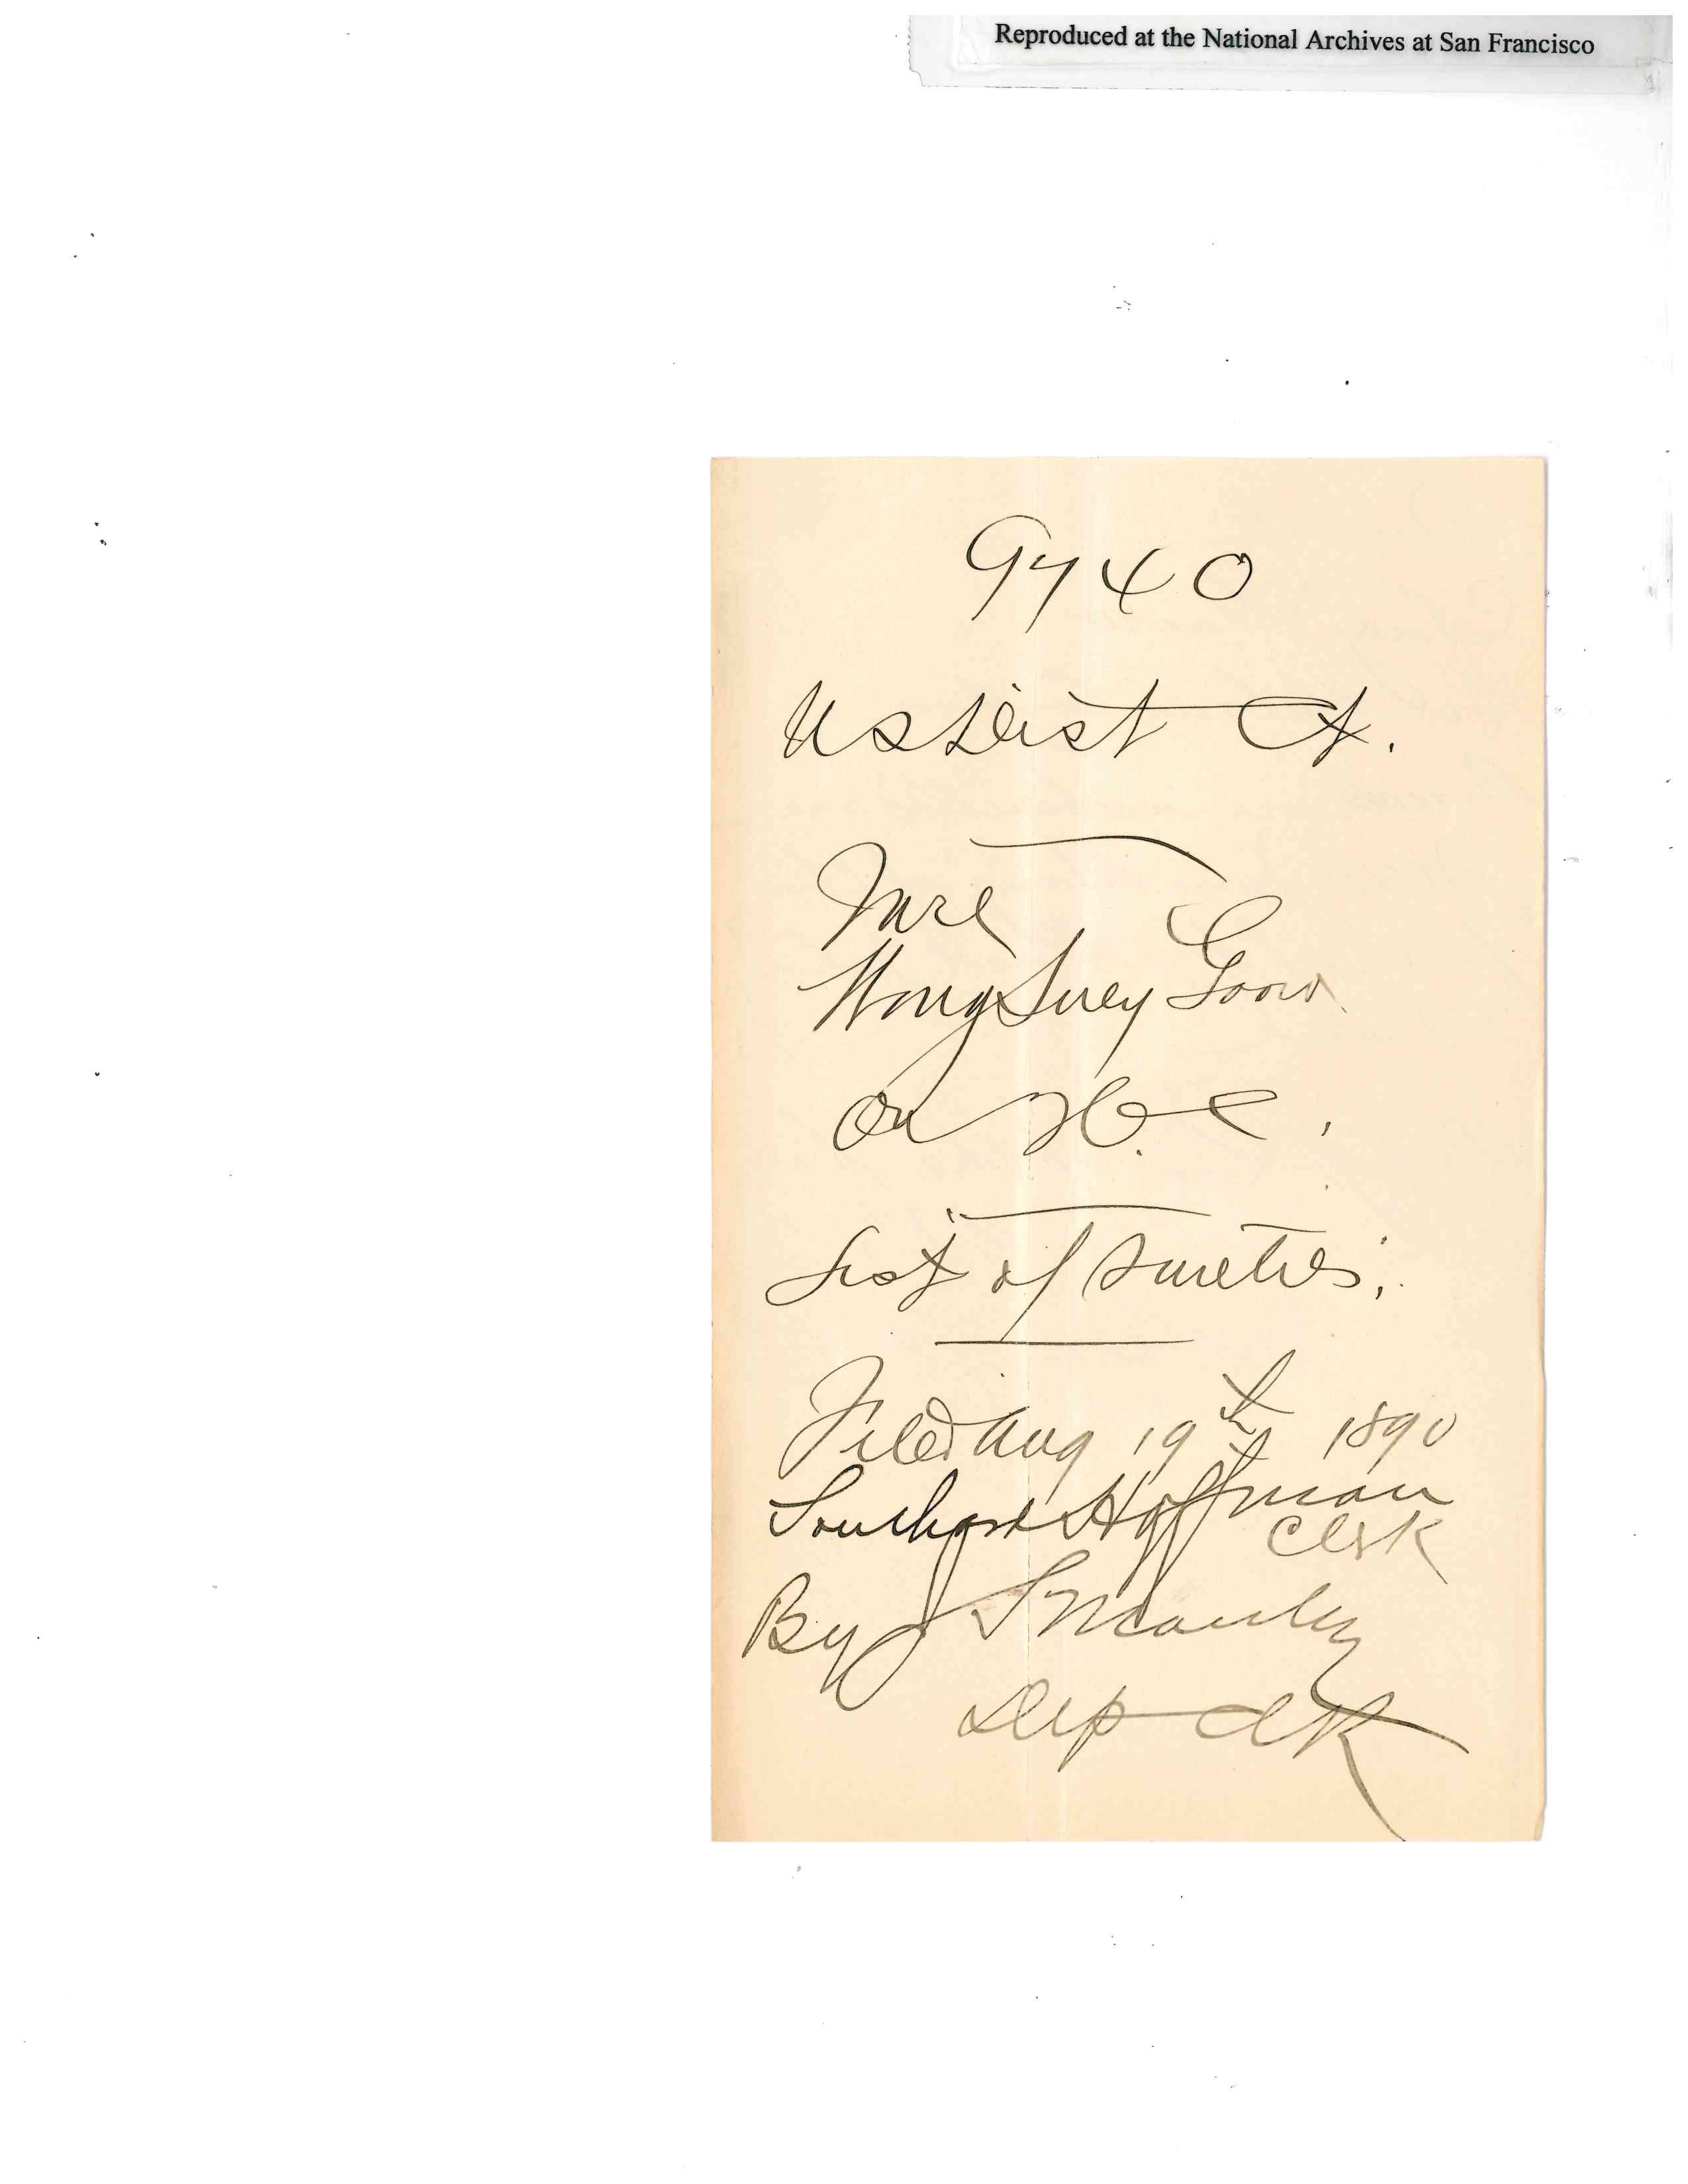 Reproduced at the National Archives at San Francisco
9740
US Dist Ct.
In re
Wong Suey
on H.C.
List of Sureties.
Filed Aug 19th 1890
Southard Hoffman
Clerk
By J S Manley
Dep Clk